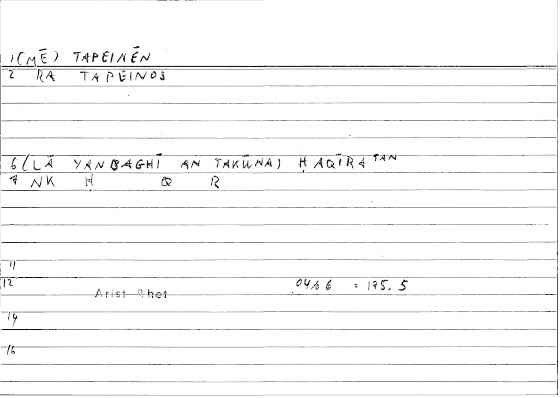 1 (MĒ) TAPEINĒN
2 RA TAPEINOS
6 (LĀ YANBAGHĪ AN TAKŪNA) ḤAQĪRATAN
7 NK Ḥ Q R
11
12 Arist Rhet 04b6 = 175.5
14
16